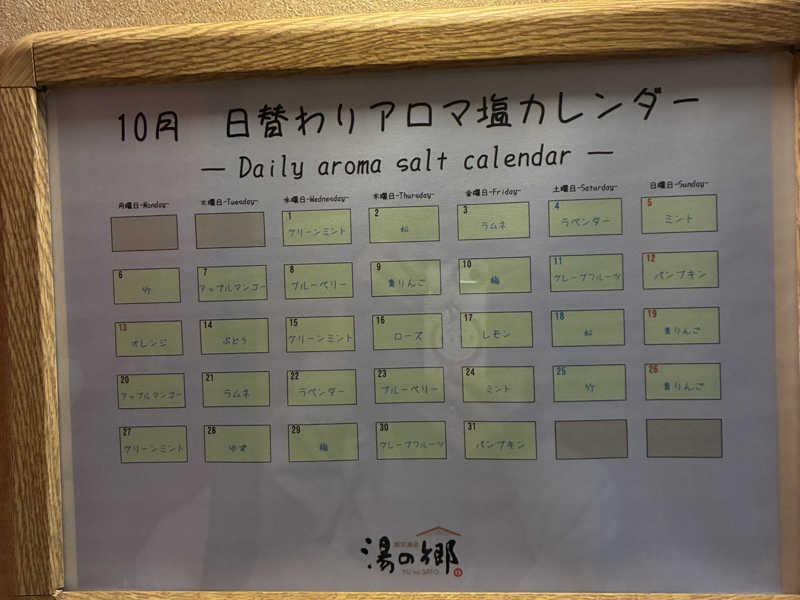 10月 日替わりアロマ塩カレンダー
— Daily aroma salt calendar —
月曜日-Monday- 火曜日-Tuesday- 水曜日-Wednesday- 木曜日-Thursday- 金曜日-Friday- 土曜日-Saturday- 日曜日-Sunday-
1 2 3 4 5
グリーンミント 松 ラムネ ラベンダー ミント
6 7 8 9 10 11 12
竹 アップルマンゴー ブルーベリー 青りんご 梅 グレープフルーツ パンプキン
13 14 15 16 17 18 19
オレンジ ぶどう グリーンミント ローズ レモン 松 青りんご
20 21 22 23 24 25 26
アップルマンゴー ラムネ ラベンダー ブルーベリー ミント 竹 青りんご
27 28 29 30 31
グリーンミント ゆず 梅 グレープフルーツ パンプキン
湯の郷
YU no SATO